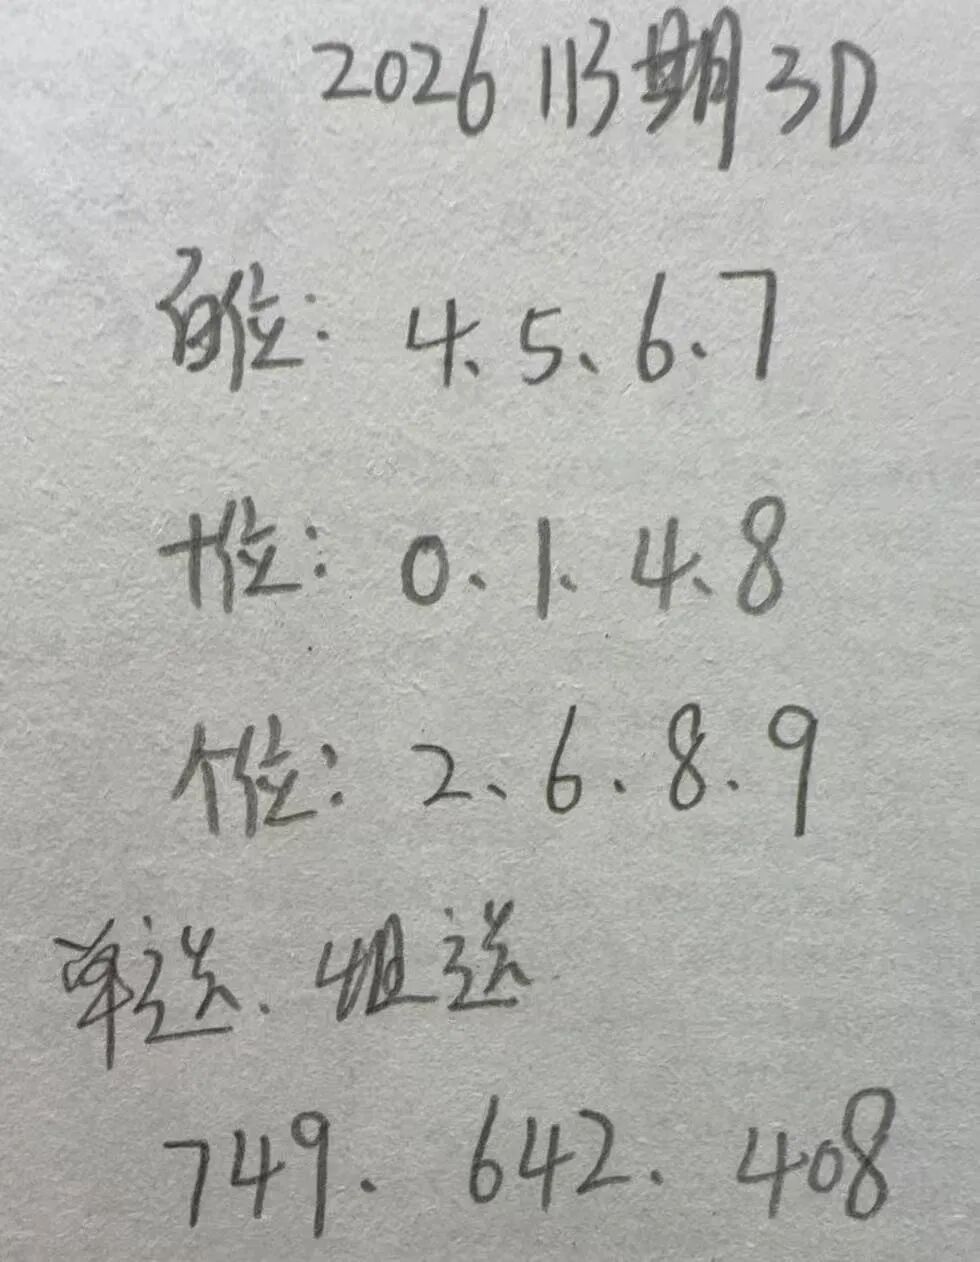 2026 113期 3D
百位: 4、5、6、7
十位: 0、1、4、8
个位: 2、6、8、9
单送、组送
749、642、408